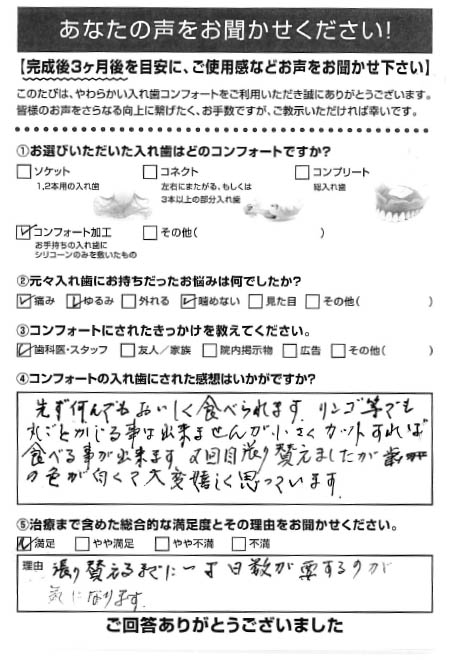 あなたの声をお聞かせください!
【完成後3ヶ月後を目安に、ご使用感などお声をお聞かせ下さい】
このたびは、やわらかい入れ歯コンフォートをご利用いただき誠にありがとうございます。
皆様のお声をさらなる向上に繋げたく、お手数ですが、ご教示いただければ幸いです。
①お選びいただいた入れ歯はどのコンフォートですか?
□ソケット □コネクト □コンプリート
1,2本用の入れ歯 左右にまたがる、もしくは 総入れ歯
3本以上の部分入れ歯
☑コンフォート加工 □その他( )
お手持ちの入れ歯に
シリコーンのみを敷いたもの
②元々入れ歯にお持ちだったお悩みは何でしたか?
☑痛み ☑ゆるみ □外れる ☑噛めない □見た目 □その他( )
③コンフォートにされたきっかけを教えてください。
☑歯科医・スタッフ □友人/家族 □院内掲示物 □広告 □その他( )
④コンフォートの入れ歯にされた感想はいかがですか?
先ず何んでもおいしく食べられます。リンゴ等でも
丸ごとかじる事は出来ませんが小さくカットすれば
食べる事が出来ます。2回目張り替えましたが
の色が白くて大変嬉しく思っています。
⑤治療まで含めた総合的な満足度とその理由をお聞かせください。
☑満足 □やや満足 □やや不満 □不満
理由 張り替えるまでに 日数が要するのが
気になります。
ご回答ありがとうございました